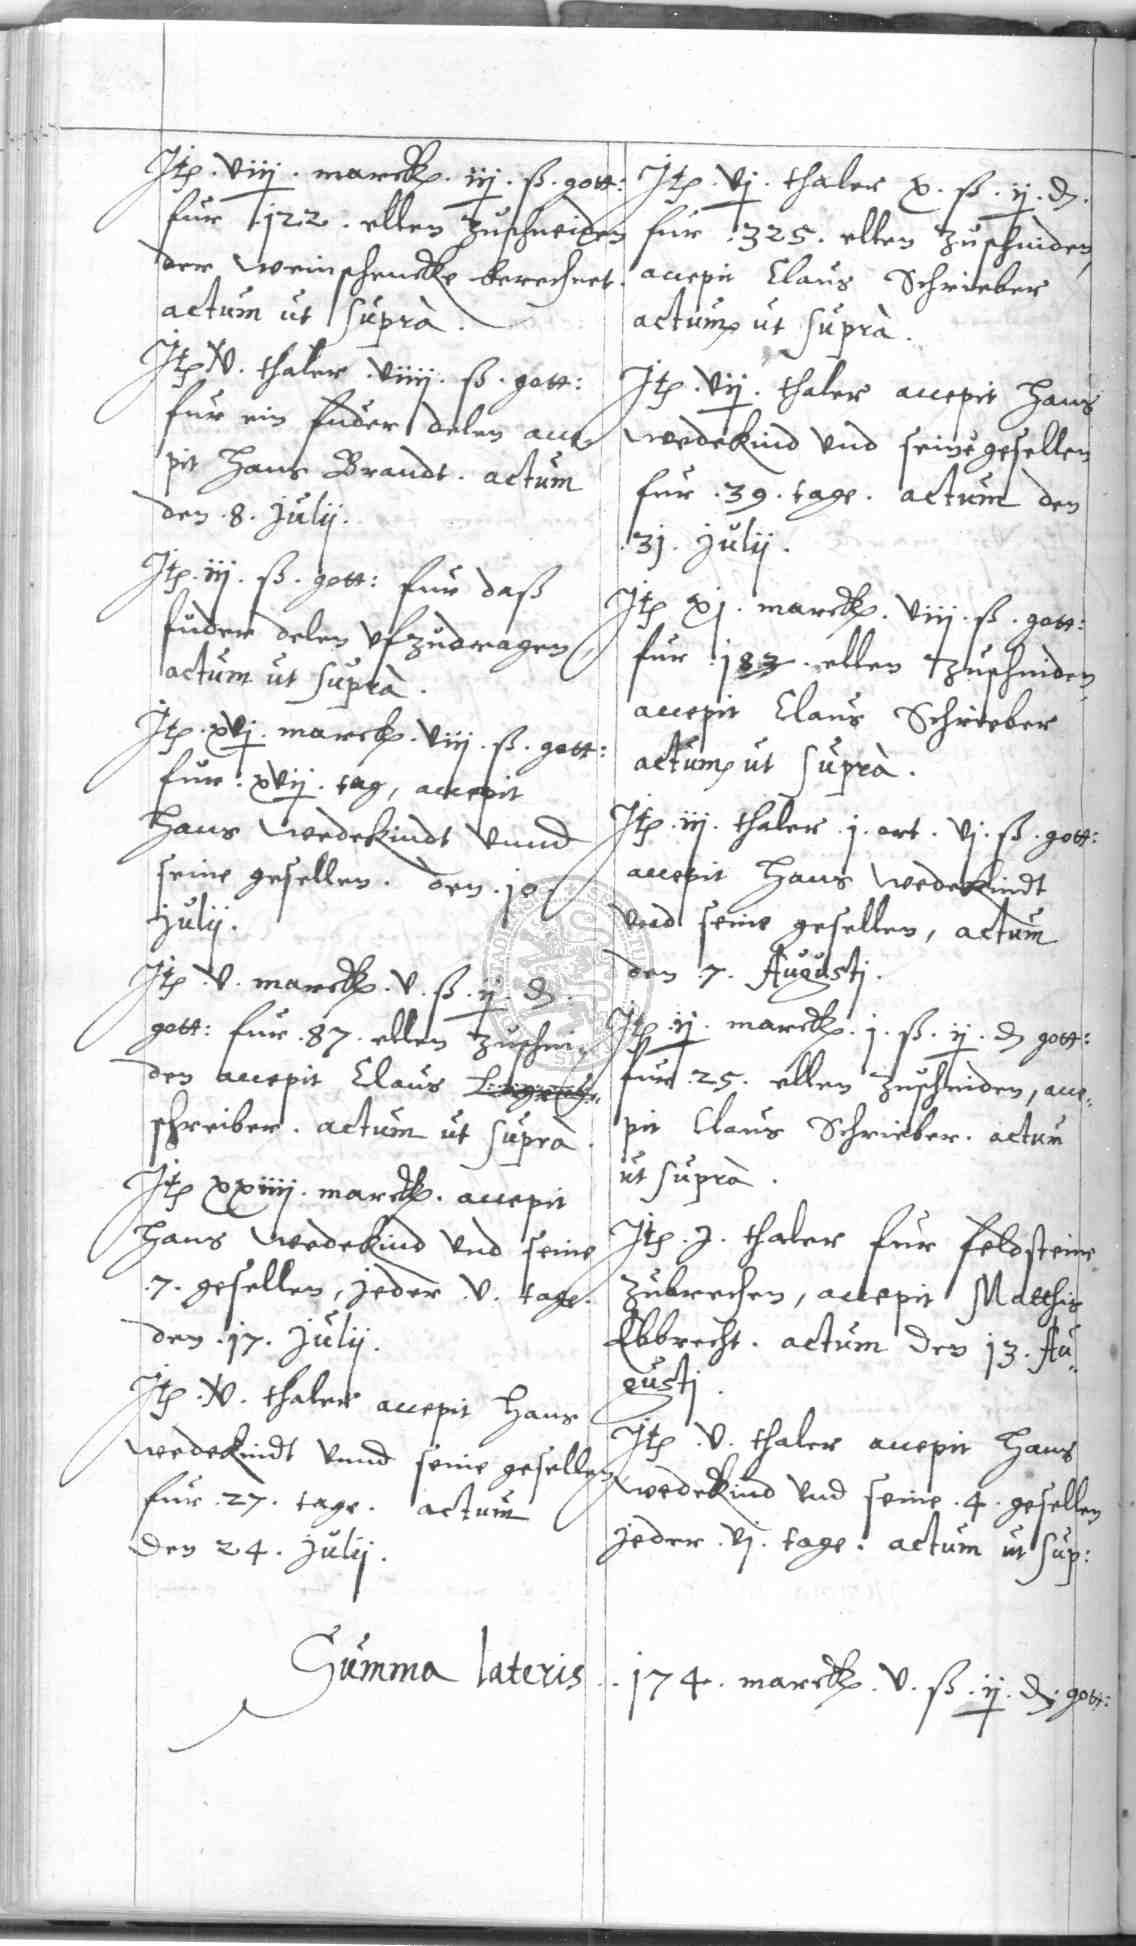 Jtp. viij. marck. iij. ß. gott:
fur .122. ellen zuschneiden
der Weinschencke berechnet.
actum ut suprà.
Jtp. V. thaler viiij. ß. gott:
fur ein fuder delen acce
pit Hans Brandt. actum
den .8. Julij.
Jtp. iij. ß. gott: fur daß
fuder delen vfzudragen,
actum ut suprà.
Jtp. xvj. marck. viij. ß. gott:
fur. xvij. tag, accepit
Hans Wedekindt vnnd
seine gesellen. den .10.
Julij.
Jtp. V. marck. V. ß. ij. d.
gott: fur .87. ellen zuschnei
den accepit Claus
schreiber. actum ut suprà.
Jtp xxiiij. marck. accepit
Hans Wedekind vnd seine
.7. gesellen, jeder .V. tage.
den .17. Julij.
Jtp. V. thaler accepit Hans
Wedekindt vnnd seine gesellen
fur .27. tage. actum
den 24. Julij.
Jtp. vj. thaler x. ß. ij. d.
fur .325. ellen zuschniden,
accepit Claus Schrieber
actum ut suprà.
Jtp. vij. thaler accepit Hans
Wedekind vnd seine gesellen
fur .39. tage. actum den
.31. Julij.
Jtp xj. marck. viij. ß. gott:
fur .183. ellen zuschniden,
accepit Claus Schrieber
actum ut suprà.
Jtp. iij. thaler j. ort. vj. ß. gott:
accepit Hans Wedekindt
vnd seine gesellen, actum
den 7. Augustj.
Jtp. ij. marck. j. ß. ij. d gott:
fur .25. ellen zuschneiden, acce„
pit Claus Schrieber. actum
ut suprà.
Jtp. J. thaler fur feldsteine
zubrechen, accepit Matthis
Ebbrecht. actum den 13. Au„
gustj.
Jtp .V. thaler accepit Hans
Wedekind vnd seine .4. gesellen
jeder .vj. tage. actum ut sup:
Summa lateris . . 174. marck. V. ß. ij. d. gott: